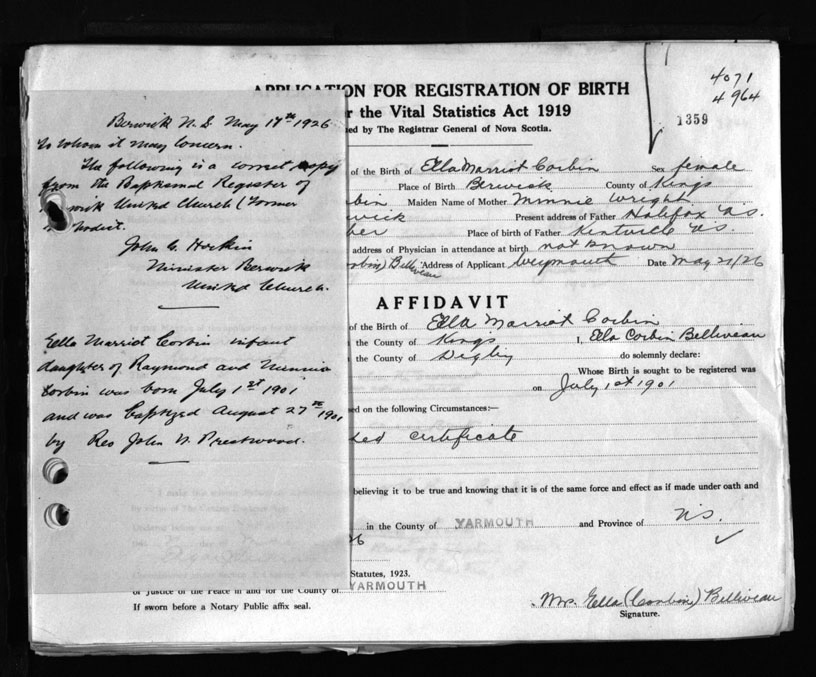 4071
4964
1359
APPLICATION FOR REGISTRATION OF BIRTH
r the Vital Statistics Act 1919
ed by The Registrar General of Nova Scotia.
of the Birth of Ella Marriot Corbin Sex female
Place of Birth Berwick County of Kings
bin Maiden Name of Mother Minnie Wright
wick Present address of Father Halifax N.S.
ber Place of birth of Father Kentville N.S.
address of Physician in attendance at birth not known
Corbin) Belliveau Address of Applicant Weymouth Date May 21/26
AFFIDAVIT
of the Birth of Ella Marriot Corbin
the County of Kings I, Ella Corbin Belliveau
the County of Digby do solemnly declare:
Whose Birth is sought to be registered was
on July 1st 1901
sed on the following Circumstances:—
certificate
believing it to be true and knowing that it is of the same force and effect as if made under oath and
in the County of YARMOUTH and Province of N.S.
26
Statutes, 1923.
of Justice of the Peace in and for the County of YARMOUTH
If sworn before a Notary Public affix seal.
Mrs. Ella (Corbin) Belliveau
Signature.
Berwick N.S. May 17th 1926
To whom it may concern.
The following is a correct copy
from the Baptismal Register of
United Church (Former
John C. Horkin
Minister Berwick
United Church.
Ella Marriot Corbin infant
daughter of Raymond and Minnie
Corbin was born July 1st 1901
and was baptized August 27th 1901
by Rev John W. Prestwood.